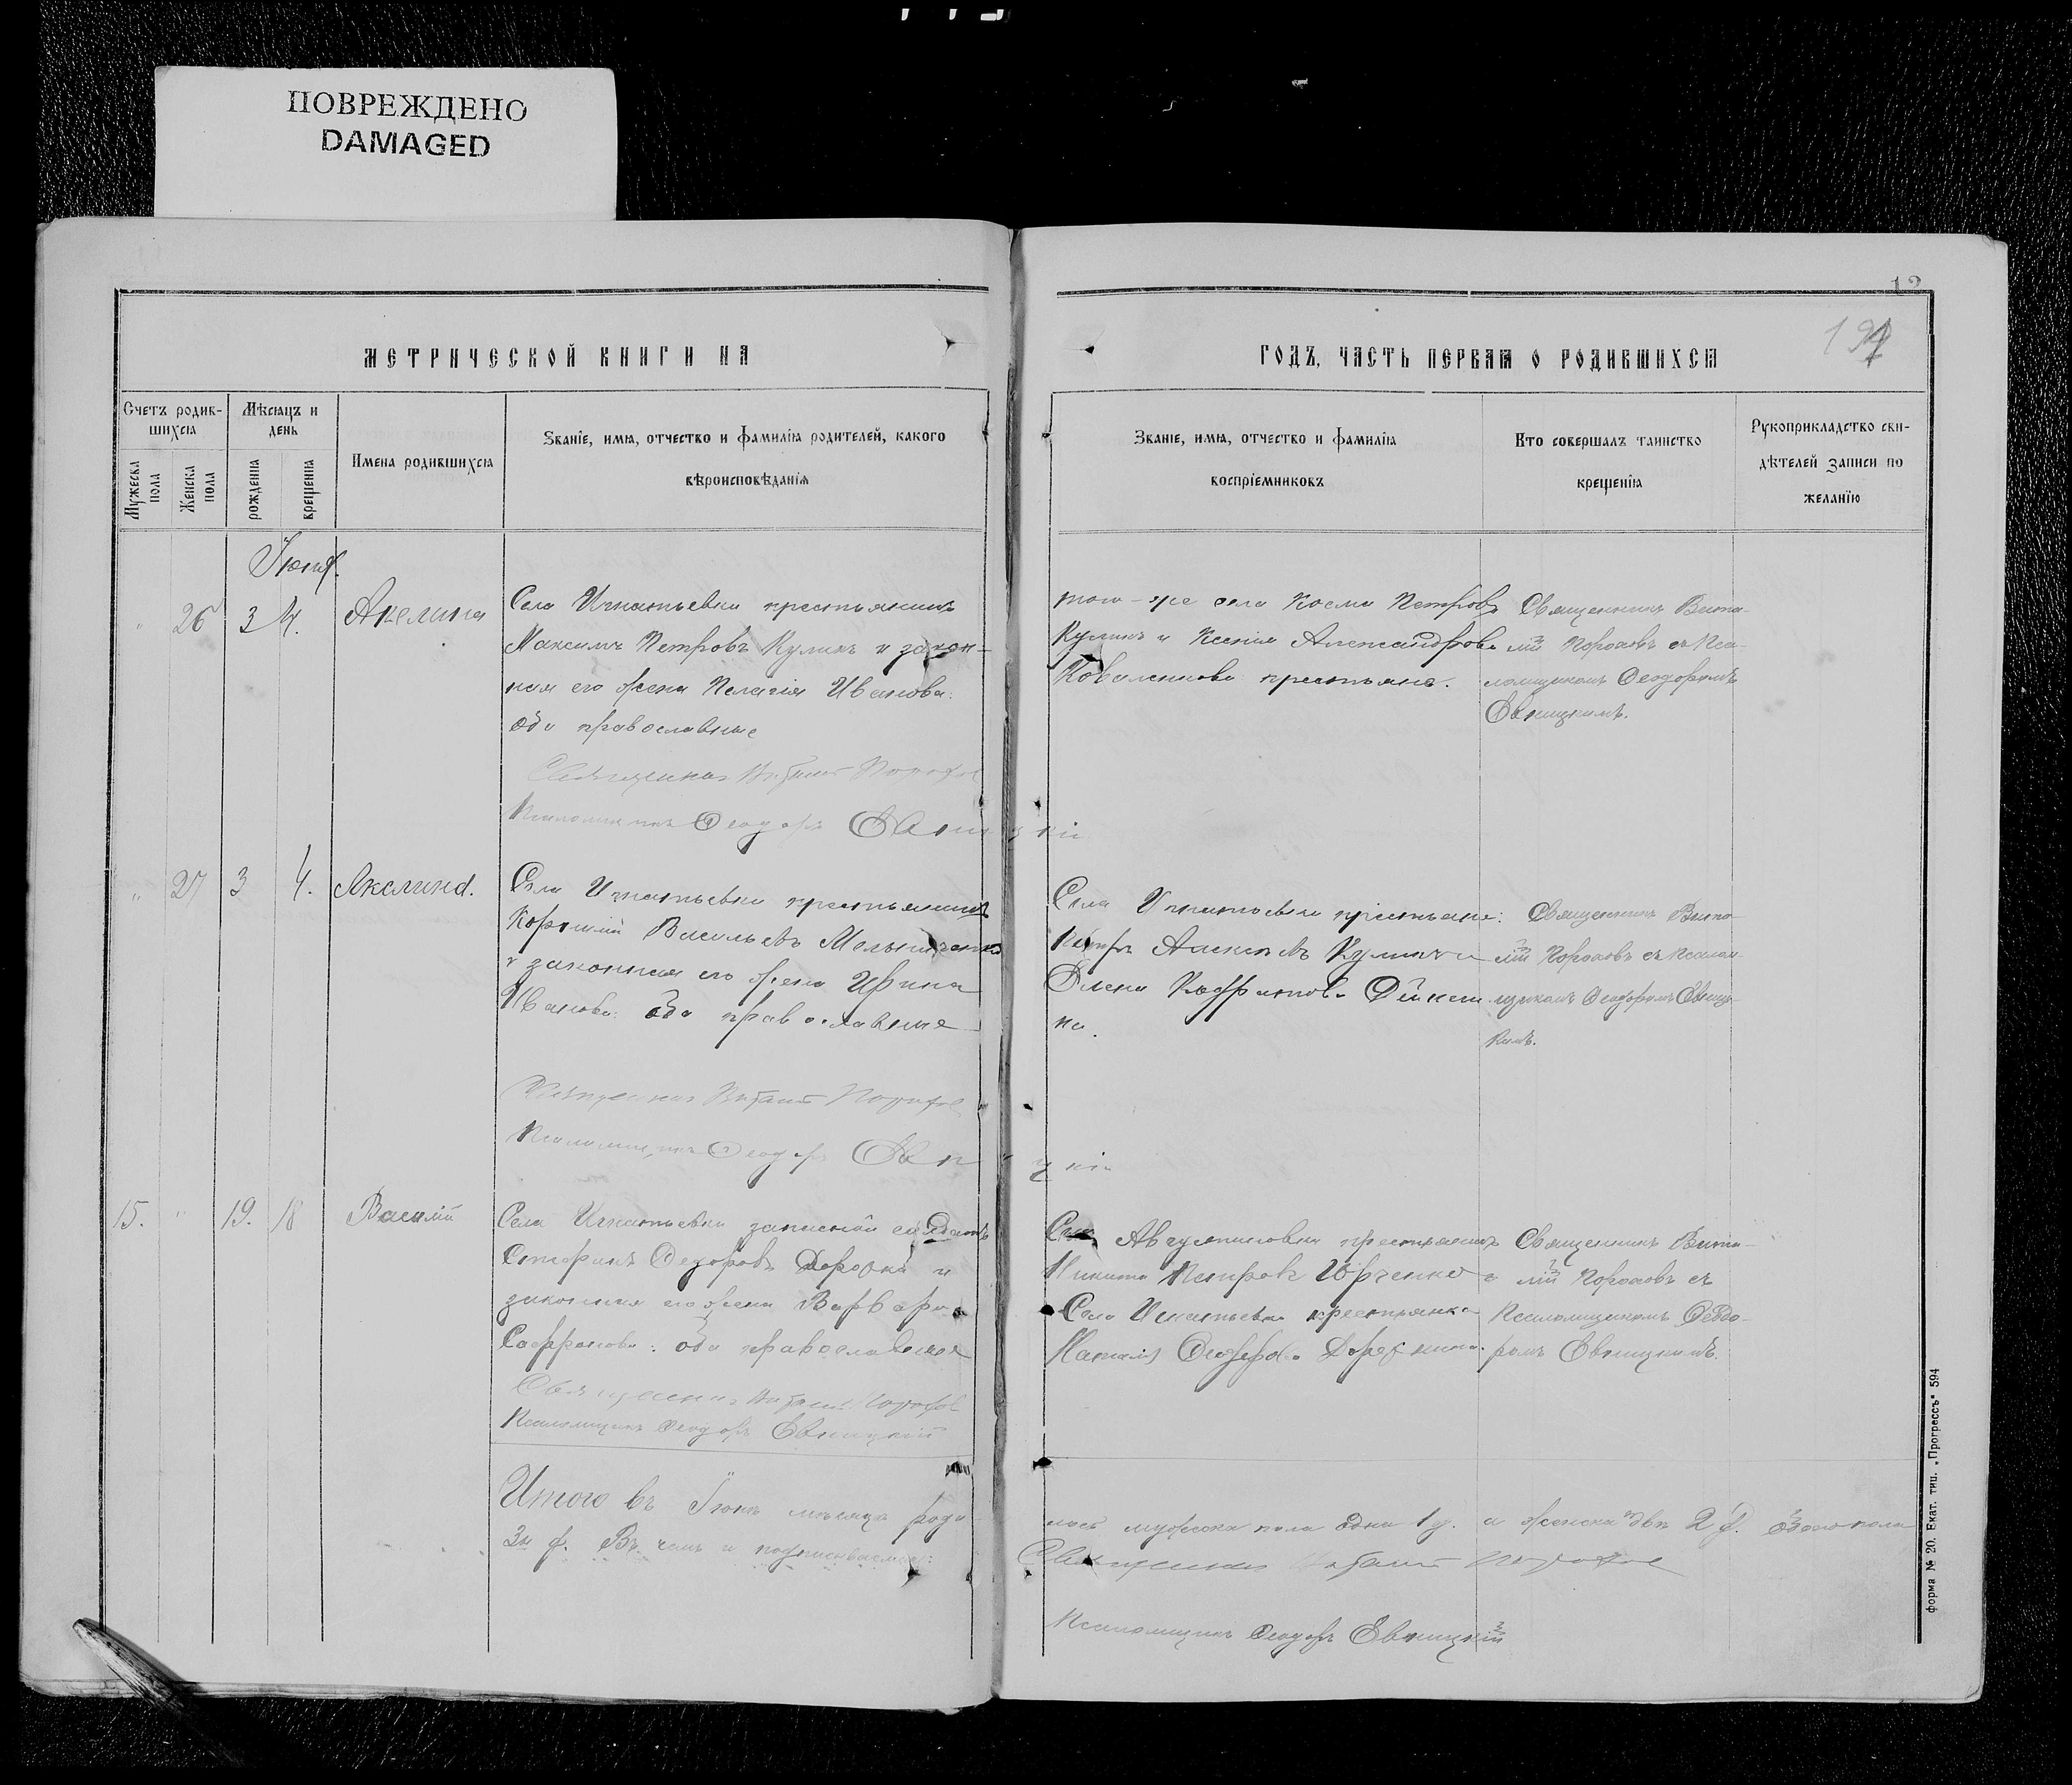 ПОВРЕЖДЕНО
DAMAGED
12
МЕТРИЧЕСКОЙ КНИГИ НА
ГОДЪ, ЧАСТЬ ПЕРВАЯ О РОДИВШИХСЯ
Счетъ родив-
шихся
Мужеска пола
Женска пола
Мѣсяцъ и
день
рожденна
крещенна
Имена родившихся
Званіе, имя, отчество и фамилія родителей, какого
вѣроисповѣданія
Званіе, имя, отчество и фамилія
воспріемниковъ
Кто совершалъ таинство
крещенія
Рукоприкладство сви-
дѣтелей записи по
желанію
Іюня.
" 26 3 4. Акелина
Села Игнатьевки крестьянинъ
Максимъ Петровъ Куликъ и закон-
ная его жена Пелагія Иванова:
оба православные
Священникъ Виталій Порохов
Псаломщикъ Ѳеодоръ Евницкій
того-же села Косма Петровъ
Куликъ и Ксенія Александрова
Коваленкова крестьяне.
Священникъ Вита-
лій Пороховъ съ Пса-
ломщикомъ Ѳеодоромъ
Евницкимъ.
" 27 3 4. Акелина.
Села Игнатьевки крестьянинъ
Корнилій Васильевъ Мельниченко
и законная его жена Ирина
Иванова: оба православные
Священникъ Виталій Порохов
Псаломщикъ Ѳеодоръ Евницкій
Села Игнатьевки крестьяне:
Петръ Алексѣевъ Куликъ и
Елена
на.
Священникъ Вита-
лій Пороховъ съ Псалом-
щикомъ Ѳеодоромъ Евниц-
кимъ.
15. " 19. 18 Василій
Села Игнатьевки запасной солдатъ
Ѳедоровъ и
законная его жена Варвара
оба православные
Священникъ Виталій Порохов
Псаломщикъ Ѳеодоръ Евницкій
Села крестьянинъ
Никита Петровъ Юрченко и
Села Игнатьевки крестьянка
Наталія Ѳеодорова
Священникъ Вита-
лій Пороховъ съ
Псаломщикомъ Ѳеодо-
ромъ Евницкимъ.
Итого въ Іюнѣ мѣсяцѣ роди-
лось мужеска пола одна 1 д. а женска двѣ 2 д. обоего пола
3и д. Въ чемъ и подписываемся:
Священникъ Виталій Порохов
Псаломщикъ Ѳеодоръ Евницкій
форма № 20. Екат. тип. „Прогрессъ" 594